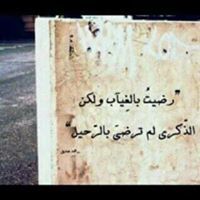 "رضيتُ بالغيآب ولكن
الذّكرى لم ترضىَ بالرّحيل"